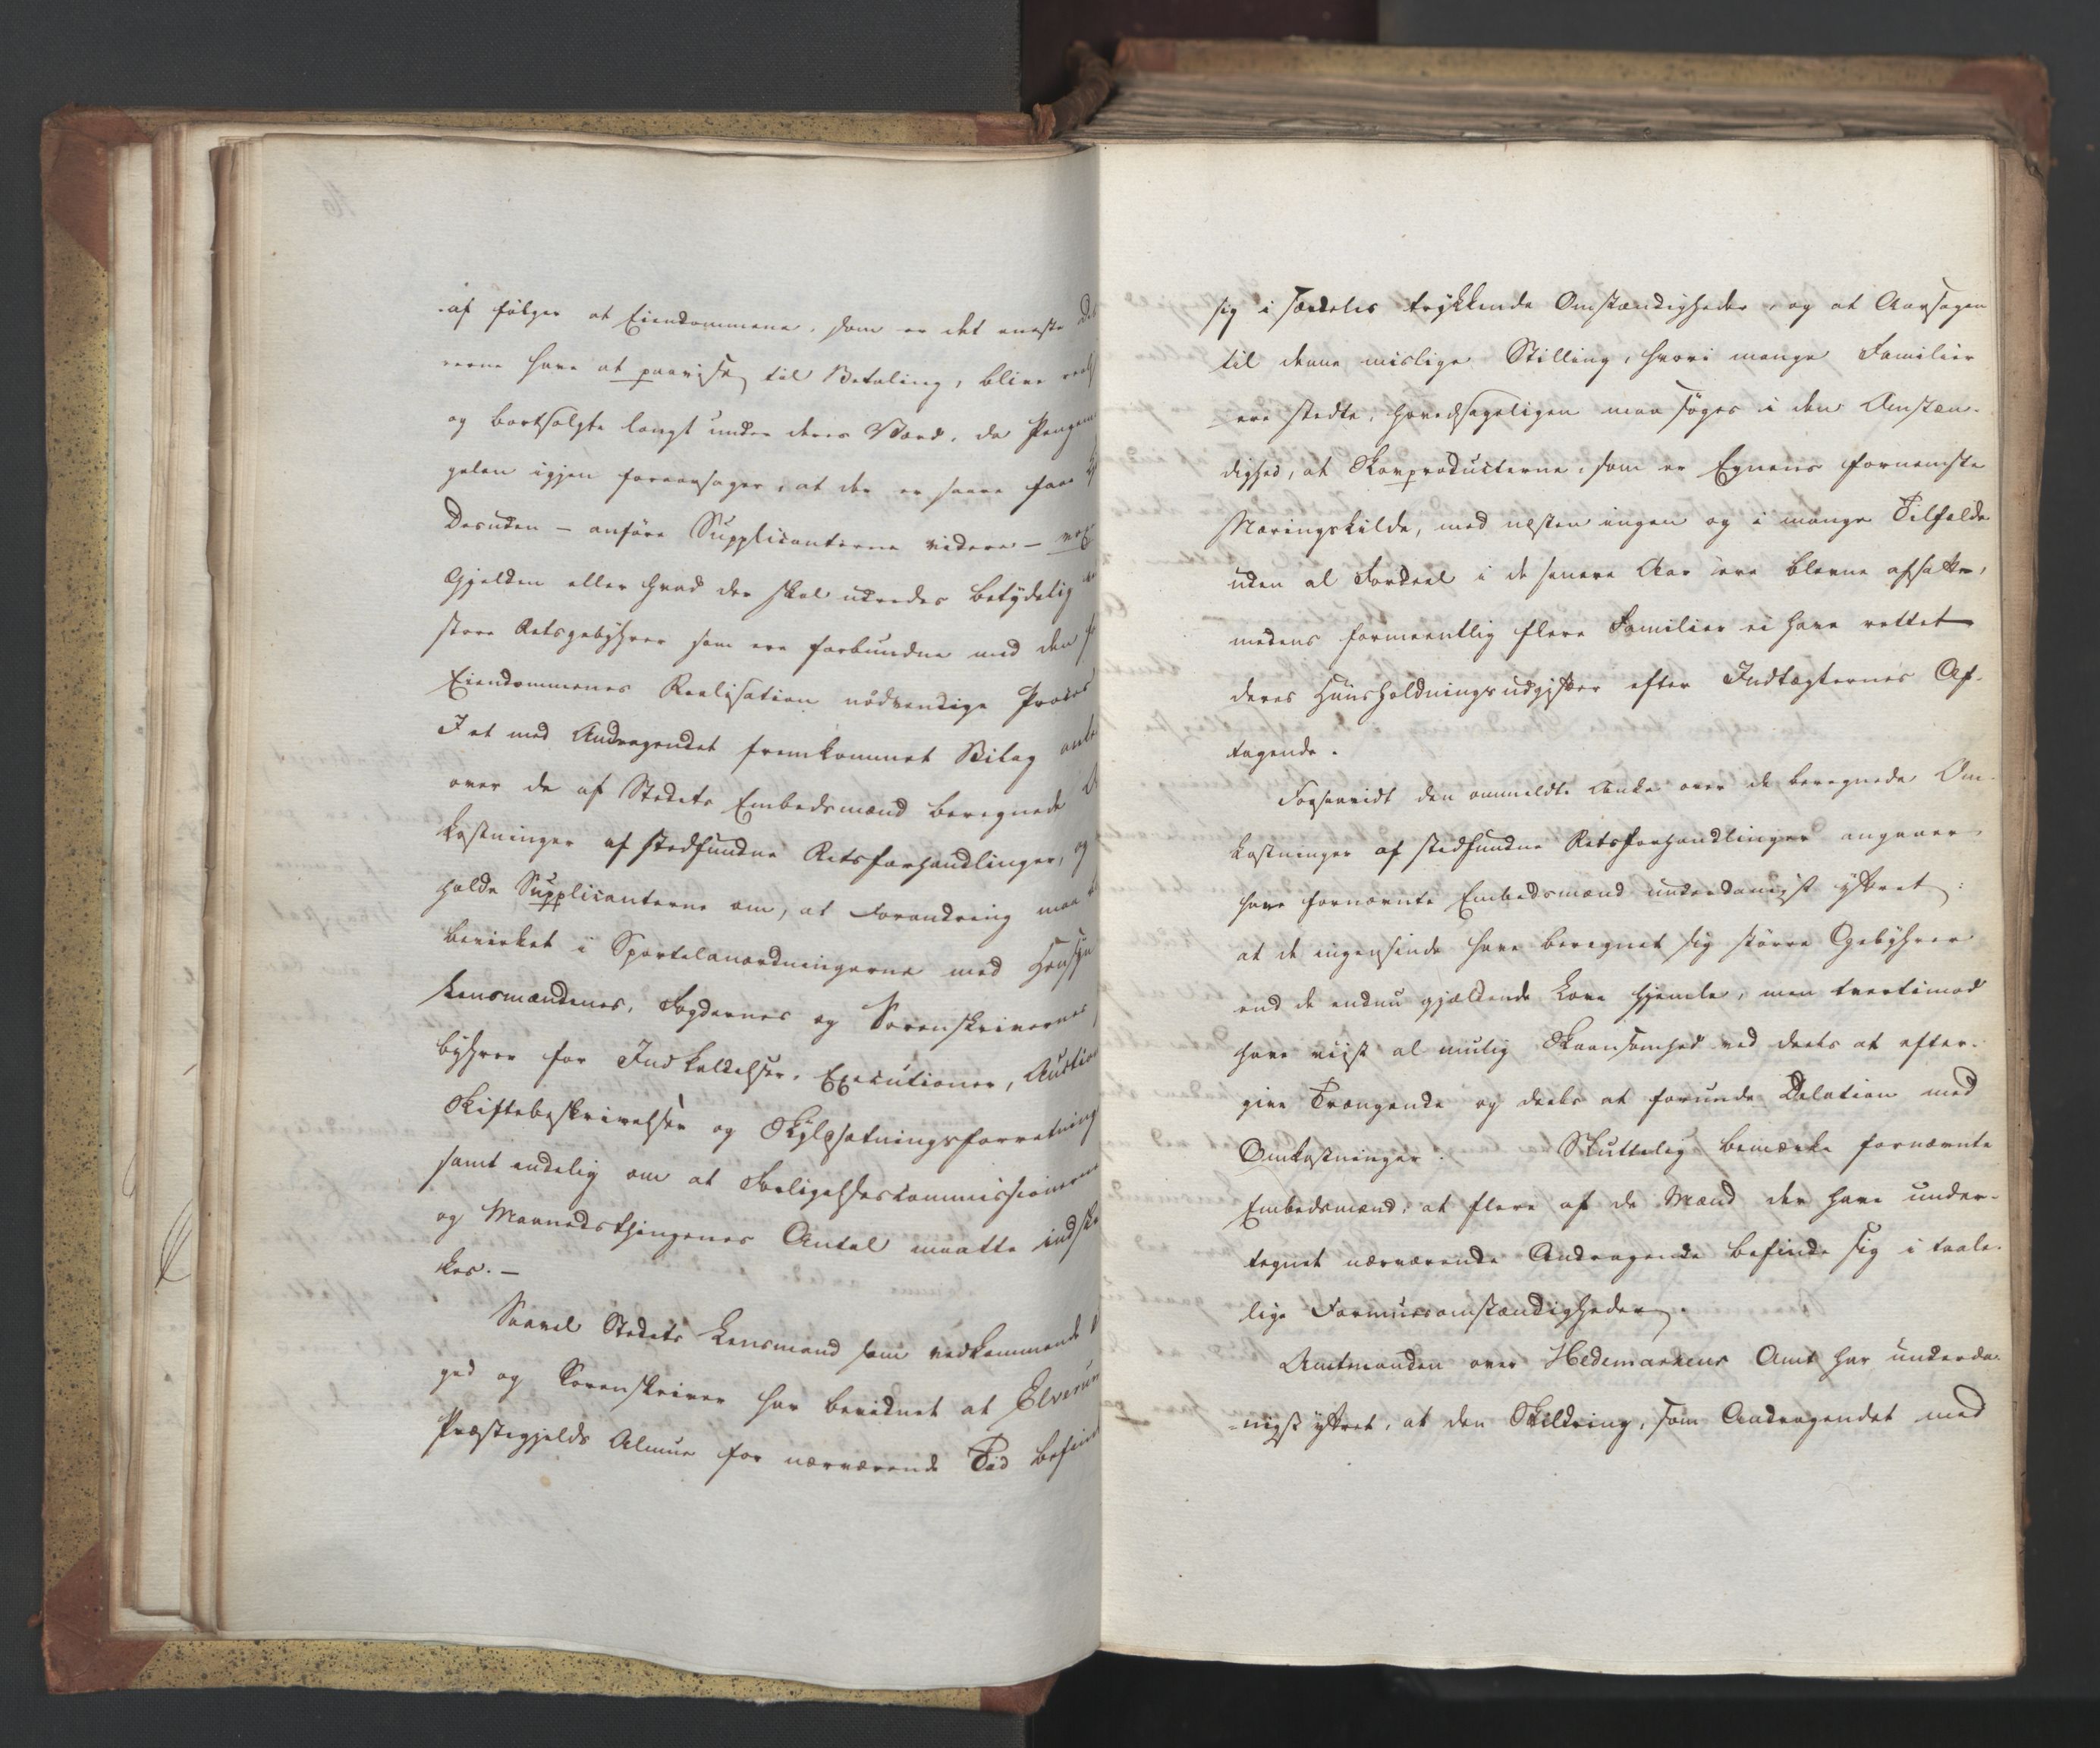 af følger at Eiendommene, som er det eneste De
rerne have at paavise til Betaling, blive
og bortsolgte langt under deres Værd, da Pengem
gelen igjen foraarsager, at der er saare faae
Desuden – anføre Supplicanterne videre –
Gjelden eller hvad der skal udredes betydelig
store Retsgebyhrer som ere forbundne med den
Eiendommenes Realisation nödvendige Proces
I et med Andragendet fremkommet Bilag
over de af Stedets Embedsmænd beregnede
kostninger af stedfundne Retsforhandlinger, og
holde Supplicanterne om, at Forandring maa
bevirket i Sportelanordningerne med Hensyn
Lensmændenes, Fogdernes og Sorenskrivernes
byhrer for Indkaldelser, Executioner, Auctio
Skiftebeskrivelser og Skyldsætningsforretning
samt endelig om at Forligelsescommissionerne
og Maanedsthingenes Antal maatte indskr
kes. –
Saavel Stedets Lensmand som vedkommende
ged og Sorenskriver har bevidnet at Elverum
Præstegjelds Almue for nærværende Tid befin
sig i særdeles trykkende Omstændigheder, og at Aarsagen
til denne mislige Stilling, hvori mange Familier
ere stedte, hovedsageligen maa søges i den Omstæn-
dighed, at Skovproducterne, som er Egnens fornemste
Næringskilde, med næsten ingen og i mange Tilfælde
uden al Fordeel i de senere Aar ere blevne afsatte,
medens formeentlig flere Familier ei have rettet
deres Huusholdningsudgifter efter Indtægternes Af-
tagende.
Forsaavidt den anmeldte Anke over de beregnede Om-
kostninger af stedfundne Retsforhandlinger angaaer,
have fornævnte Embedsmænd underdanigst yttret:
at de ingensinde have beregnet sig större Gebyhrer
end de endnu gjældende Love hjemle, men tvertimod
have viist al mulig Skaansomhed ved deels at efter-
give Trængende og deels at forunde Dilation med
Omkostninger. Sluttelig bemærke fornævnte
Embedsmænd, at flere af de Mænd der have under-
tegnet nærværende Andragende befinde sig i taale-
lige Formuesomstændigheder.
Amtmanden over Hedemarkens Amt har underda-
nigst yttret, at den Skildring, som Andragendet med